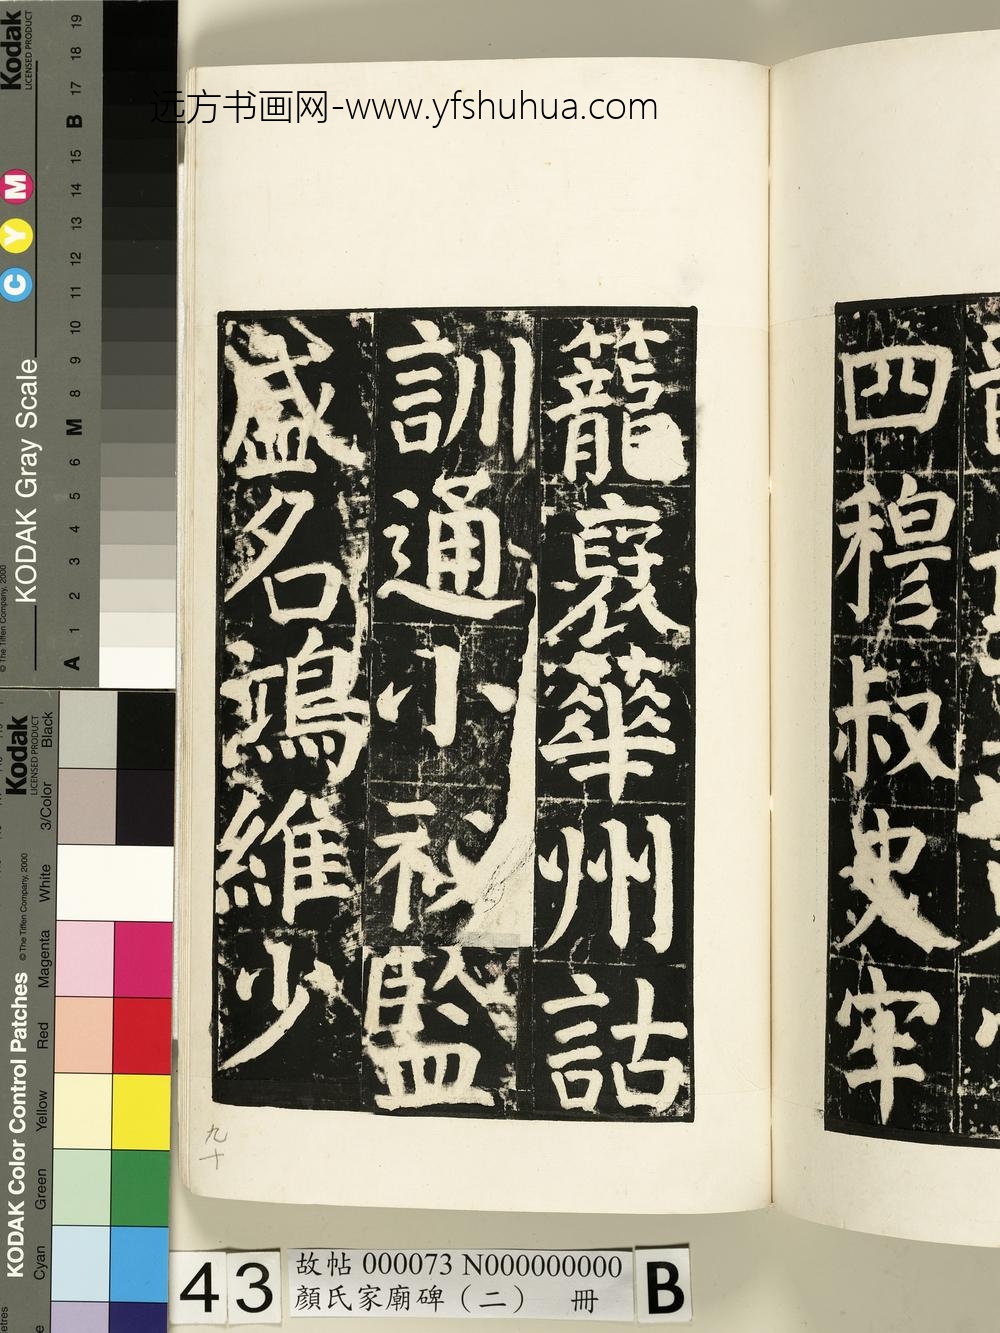 远方书画网-www.yfshuhua.com
四穆叔史牢
籠裦華州詁
訓通小祕監
盛名鴻維少
九十
43
故帖 000073 N000000000
顏氏家廟碑（二） 冊
B
Kodak
LICENSED PRODUCT
KODAK Gray Scale
© The Tiffen Company, 2000
C Y M
A 1 2 3 4 5 6 M 8 9 10 11 12 13 14 15 B 17 18 19
Kodak
LICENSED PRODUCT
KODAK Color Control Patches
© The Tiffen Company, 2000
Cyan Green Yellow Red Magenta White 3/Color Black